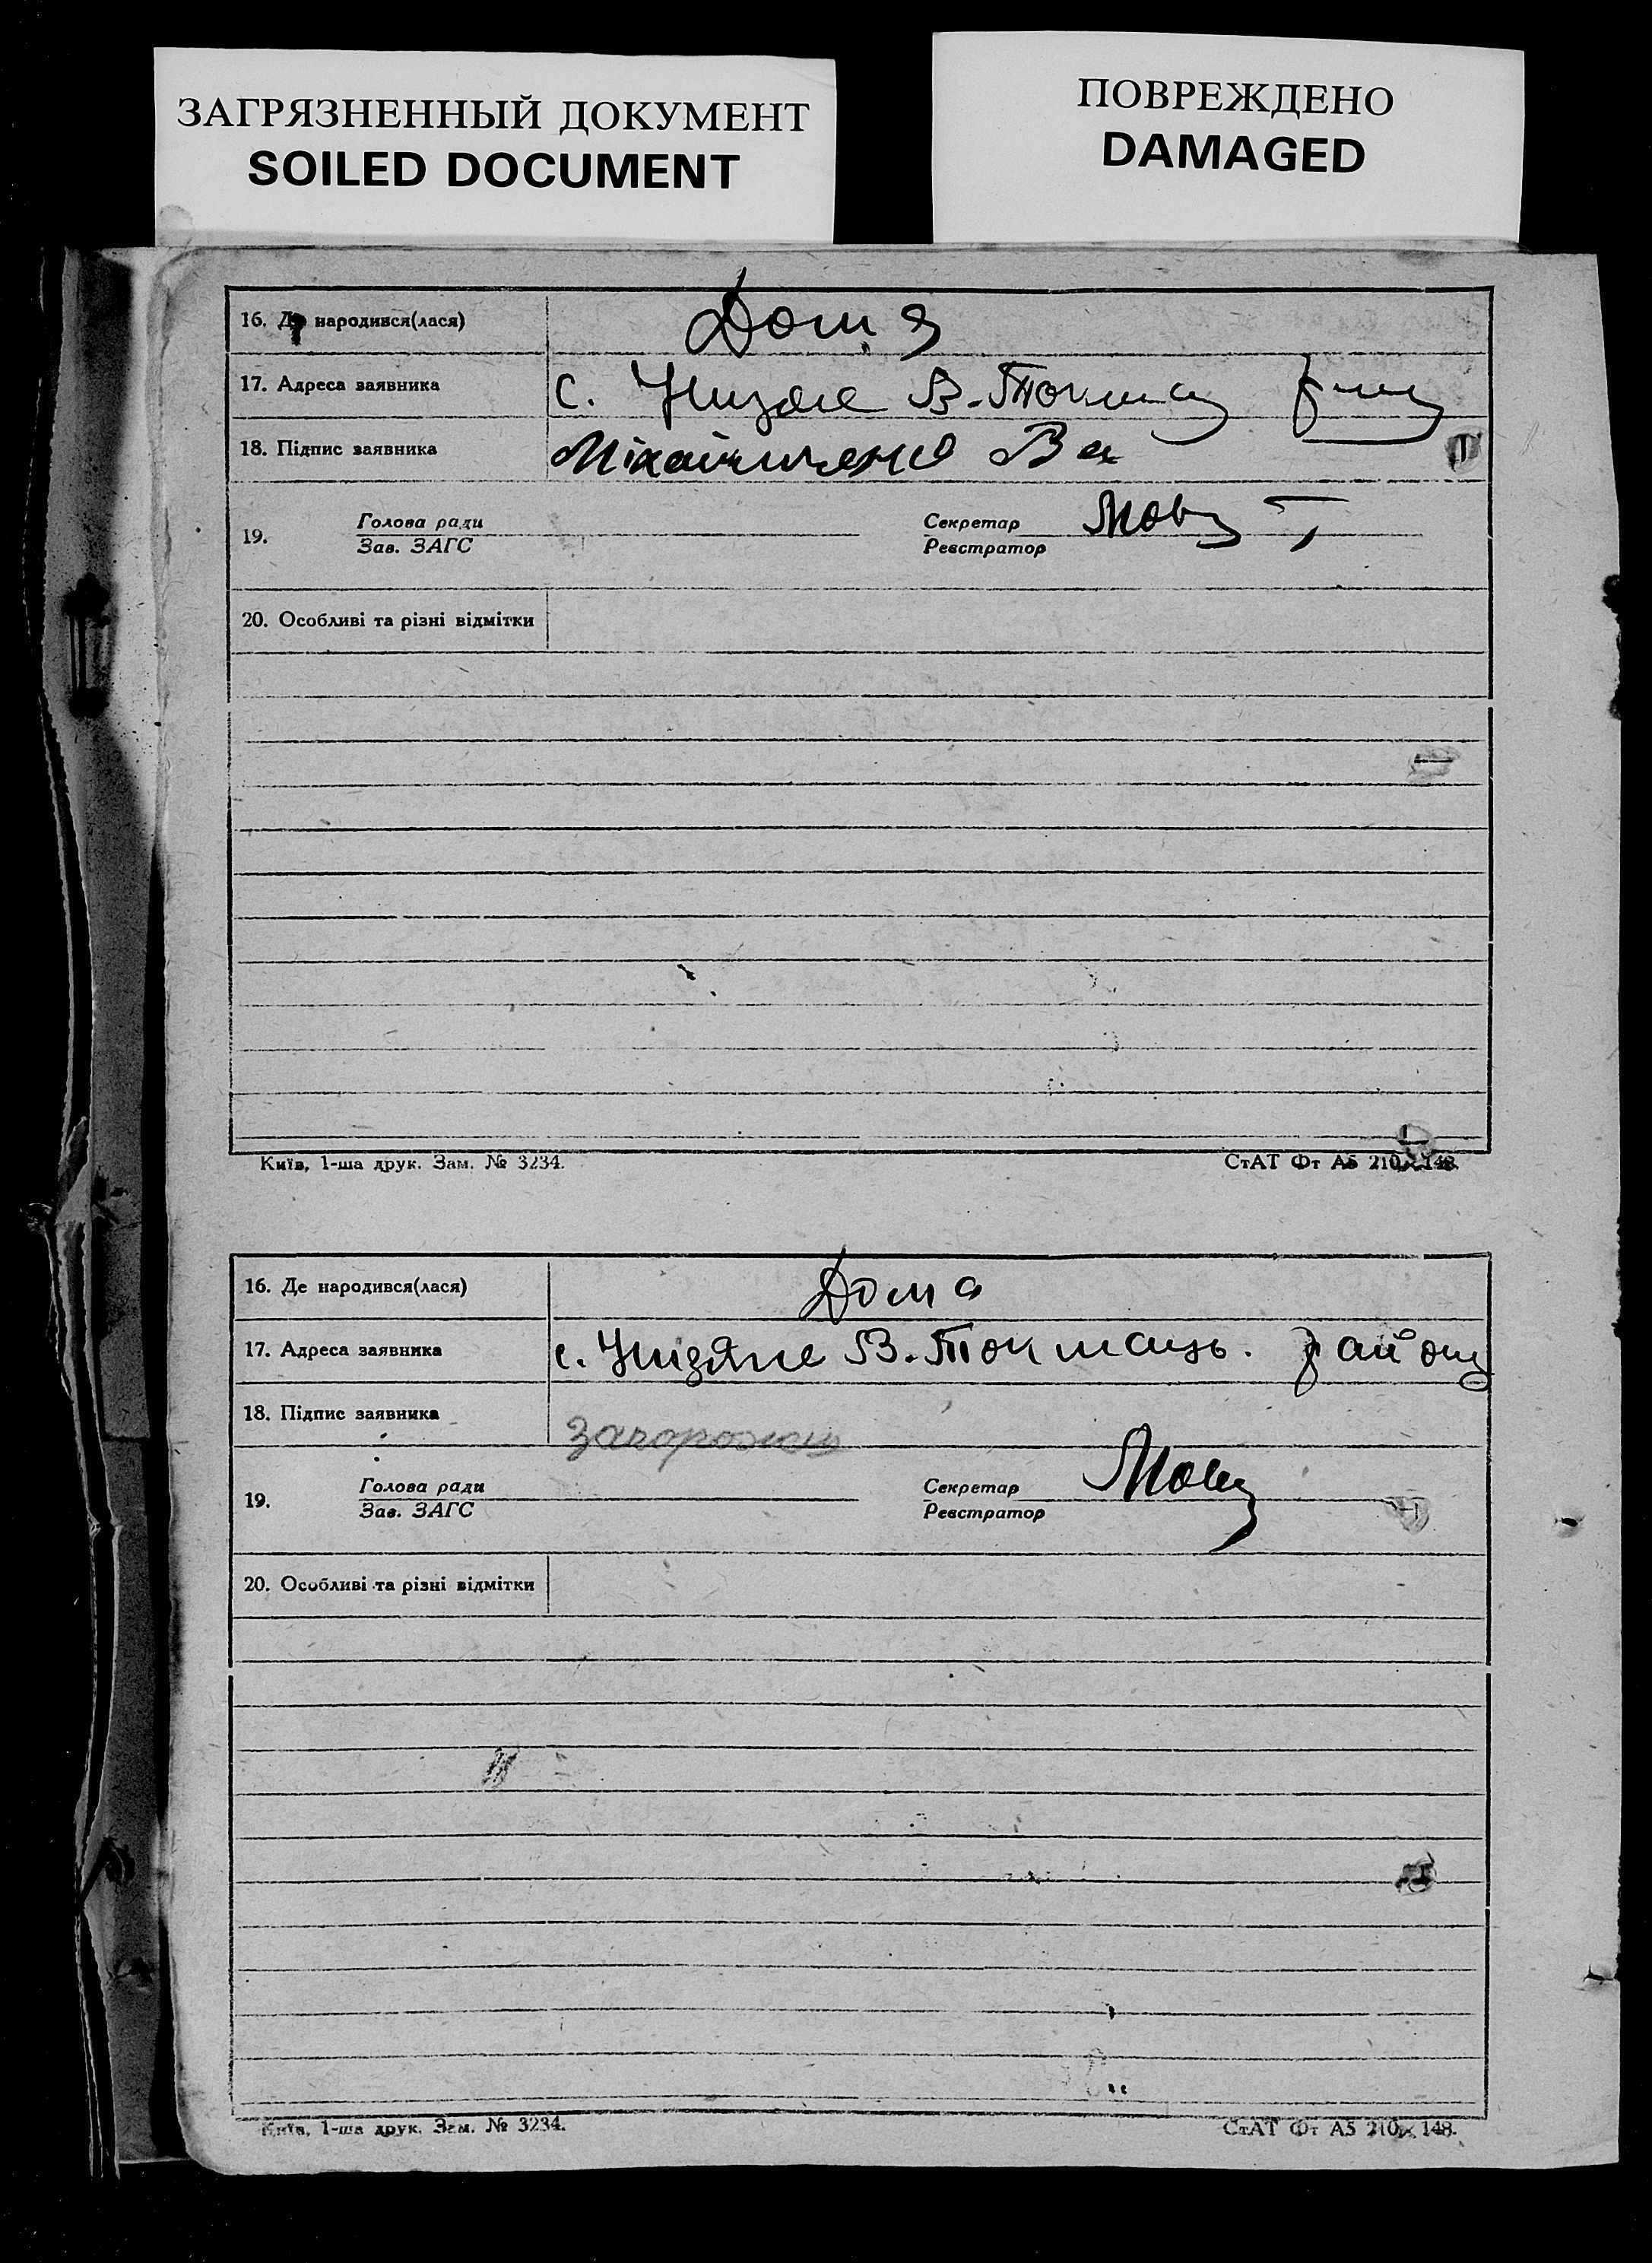 ЗАГРЯЗНЕННЫЙ ДОКУМЕНТ
SOILED DOCUMENT
ПОВРЕЖДЕНО
DAMAGED
16. Де народився(лася) Дома
17. Адреса заявника с. В.-Токмац
18. Підпис заявника
19. Голова ради
Зав. ЗАГС
Секретар
Реєстратор
20. Особливі та різні відмітки
Київ, 1-ша друк. Зам. № 3234.
СтАТ Фт А5 210×148.
16. Де народився(лася) Дома
17. Адреса заявника с. В.-Токмацьк. району
18. Підпис заявника
19. Голова ради
Зав. ЗАГС
Секретар
Реєстратор
20. Особливі та різні відмітки
Київ, 1-ша друк. Зам. № 3234.
СтАТ Фт А5 210×148.